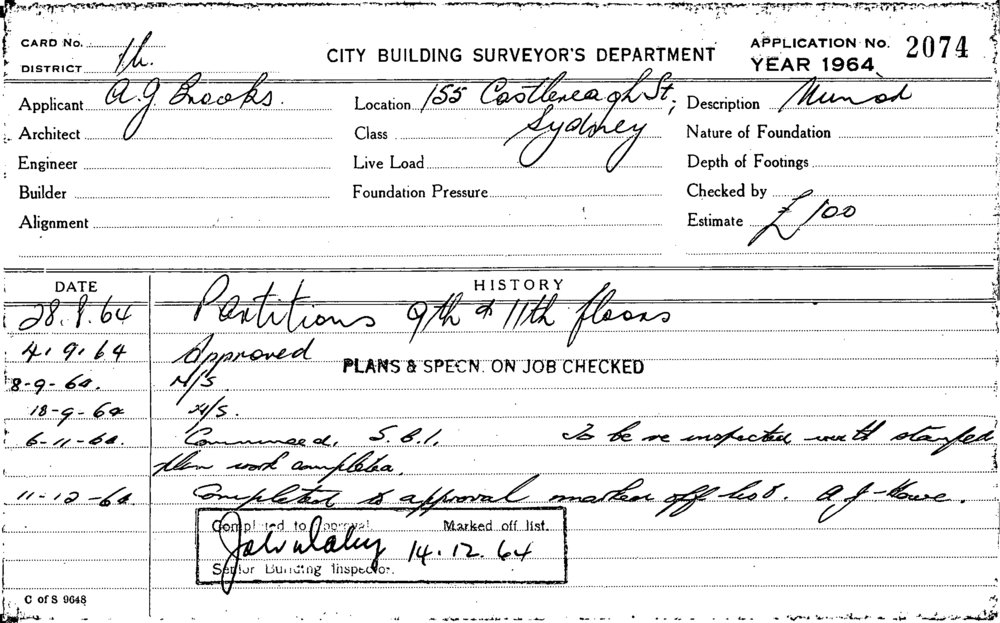 CARD No.
CITY BUILDING SURVEYOR'S DEPARTMENT
APPLICATION No. 2074
DISTRICT
YEAR 1964
Applicant A. J. Brooks.
Location 155 Castlereagh St,
Description
Architect
Class Sydney
Nature of Foundation
Engineer
Live Load
Depth of Footings
Builder
Foundation Pressure
Checked by
Alignment
Estimate £100
DATE
HISTORY
28.8.64 Partitions 9th & 11th floors
4.9.64 Approved
PLANS & SPECN. ON JOB CHECKED
8-9-64. N/S.
18-9-64 N/S.
6-11-64. Commenced. S.B.I. To be re inspected with stamped
plan work completed.
11-12-64 Completed to approval marked off list. A J Howe.
Completed to Approval. Marked off list.
14.12.64
Senior Building Inspector.
C of S 9648